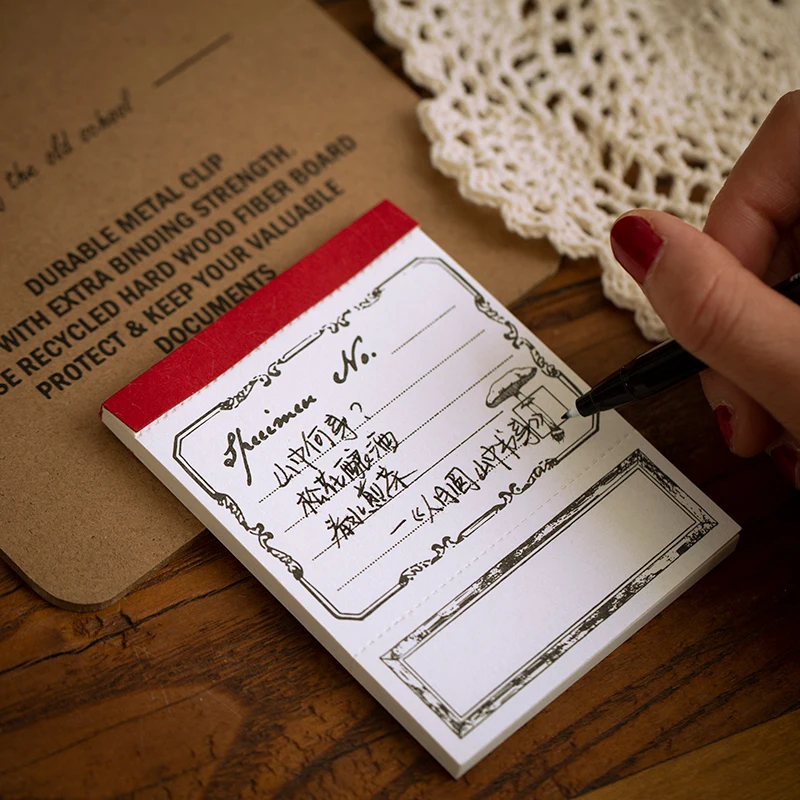 the old school
DURABLE METAL CLIP
WITH EXTRA BINDING STRENGTH.
SE RECYCLED HARD WOOD FIBER BOARD
PROTECT & KEEP YOUR VALUABLE
DOCUMENTS
Specimen No.
山中何事?
松花酿酒
春水煎茶
—《人月圆 山中书事》